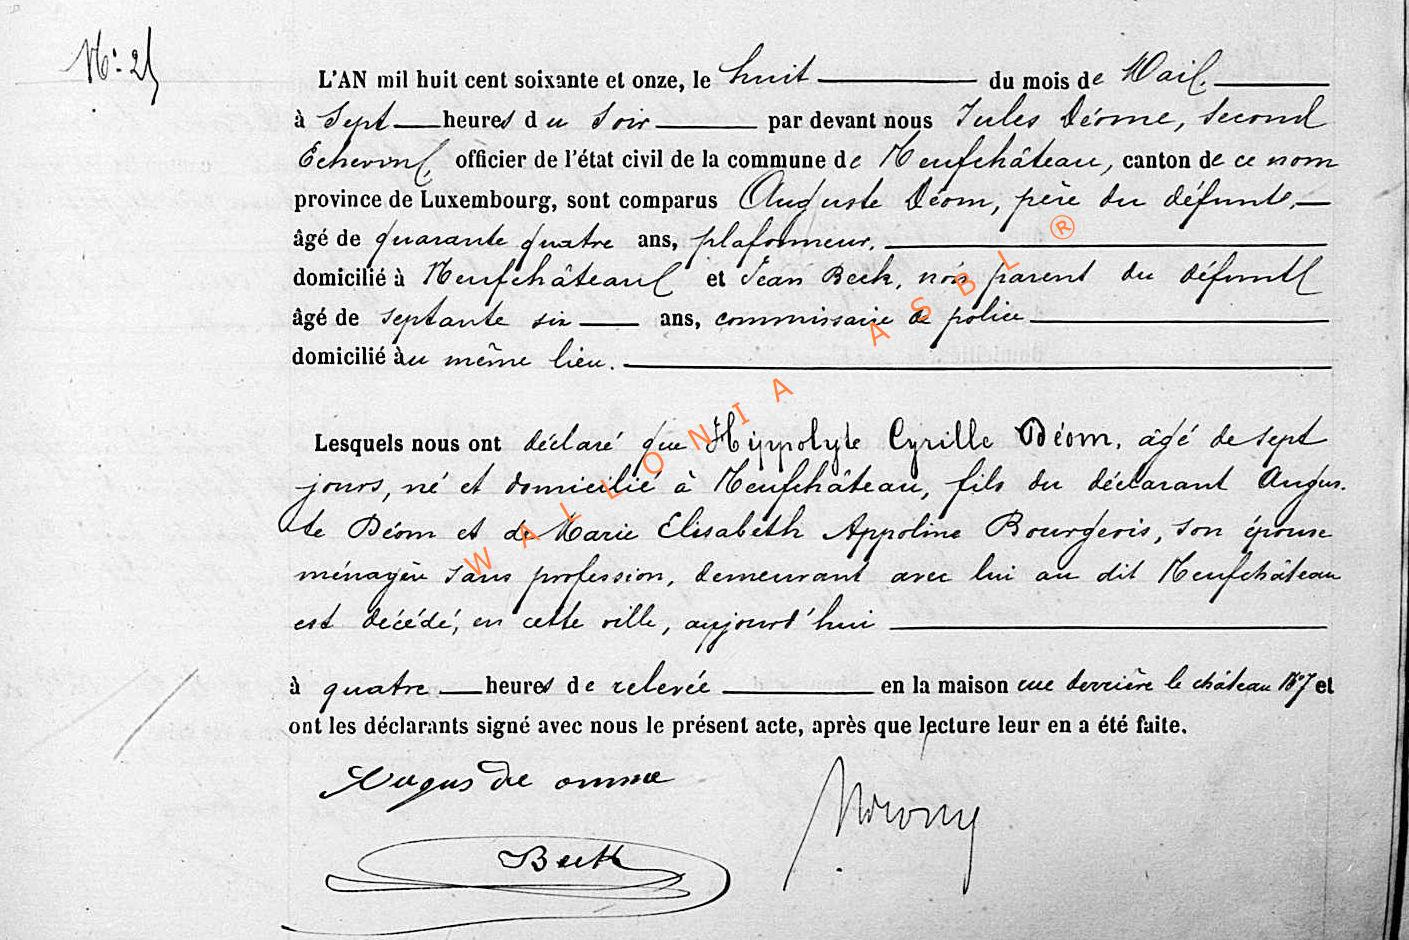 N° 25
L'AN mil huit cent soixante et onze, le huit du mois de Mai
à Sept heures du Soir par devant nous Jules Déome, second
Echevin, officier de l'état civil de la commune de Neufchâteau, canton de ce nom
province de Luxembourg, sont comparus Auguste Déom, père du défunt,
âgé de quarante quatre ans, plafonneur,
domicilié à Neufchâteau et Jean Beck, non parent du défunt
âgé de septante six ans, commissaire de police
domicilié àu même lieu.
Lesquels nous ont déclaré que Hippolyte Cyrille Déom, âgé de sept
jours, né et domicilié à Neufchâteau, fils du déclarant Augus-
te Déom et de Marie Elisabeth Appoline Bourgeois, son épouse
ménagère sans profession, demeurant avec lui au dit Neufchâteau
est décédé, en cette ville, aujourd'hui
à quatre heures de relevée en la maison rue derrière le château et
ont les déclarants signé avec nous le présent acte, après que lecture leur en a été faite.
Beck
WALLONIA ASBL ®